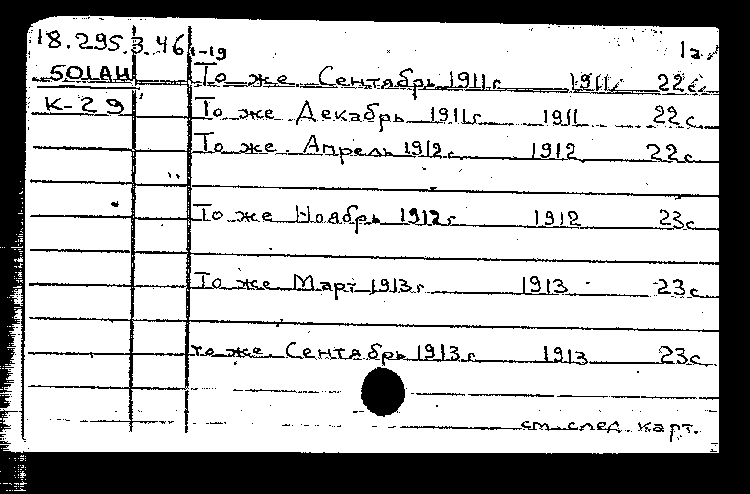 18.295.3.46 1-19 1а
501АН То же Сентябрь 1911г 1911 22с
К-29 То же Декабрь 1911г 1911 22с
То же. Апрель 1912г 1912 22с
То же Ноябрь 1912г 1912 23с
То же Март 1913г 1913 23с
то же. Сентябрь 1913г 1913 23с
см след. карт.